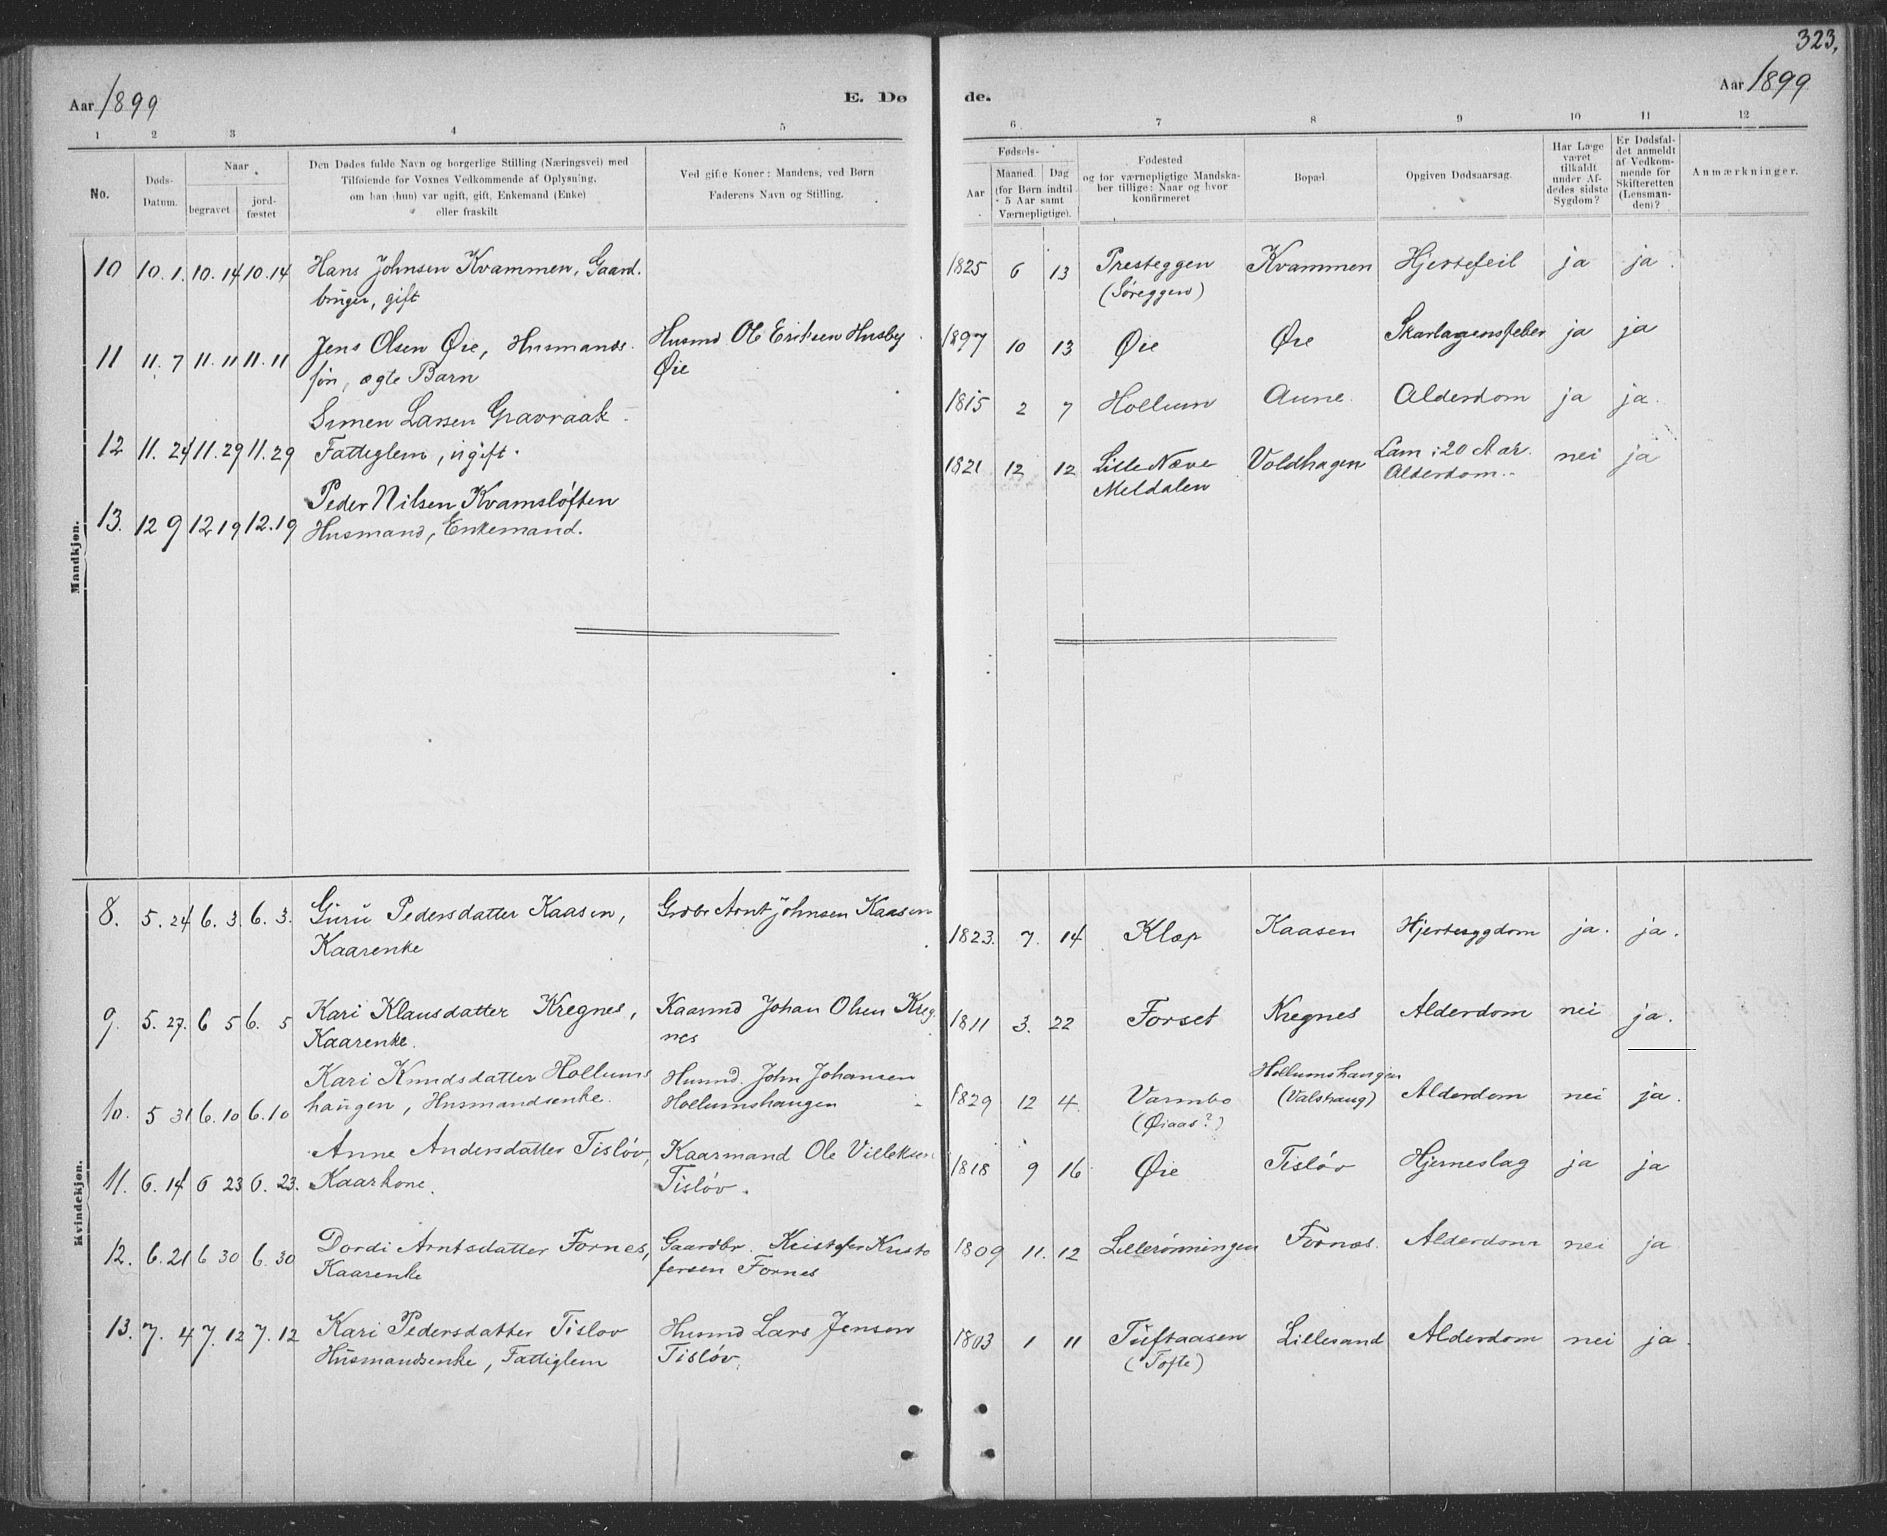 323.
Aar 1899
E. Dø
de.
Aar 1899
1 2 3 4 5
6 7 8 9 10 11 12
No.
Døds-
Datum.
Naar
begravet
jord-
fæstet
Den Dødes fulde Navn og borgerlige Stilling (Næringsvei) med
Tilføiende for Voxnes Vedkommende af Oplysning,
om han (hun) var ugift, gift, Enkemand (Enke)
eller fraskilt
Ved gifte Koner: Mandens, ved Børn
Faderens Navn og Stilling.
Fødsels-
Aar
Maaned. Dag
(for Børn indtil
5 Aar samt
Værnepligtige).
Fødested
og for værnepligtige Mandska-
ber tillige: Naar og hvor
konfirmeret
Bopæl.
Opgiven Dødsaarsag.
Har Læge
været
tilkaldt
under Af-
dødes sidste
Sygdom?
Er Dødsfal-
det anmeldt
af Vedkom-
mende for
Skifteretten
(Lensman-
den)?
Anmærkninger.
Mandkjøn.
10 10. 1. 10. 14 10. 14 Hans Johnsen Kvammen, Gaard- 1825 6 13 Presteggen Kvammen Hjertefeil ja ja.
bruger, gift (Søreggen)
11 11. 7 11. 11 11. 11 Jens Olsen Øie, Husmands- Husmd Ole Eriksen Husby 1897 10 13 Øie Øie Skarlagensfeber ja ja
søn, ægte Barn Øie
Simen Larsen Gravraak 1815 2 7 Hollum Aune. Alderdom ja ja.
12 11. 24 11. 29 11. 29 Fattiglem, ugift. 1821 12 12 Lille Næve Voldhagen Lam i 20 Aar. nei ja
Meldalen Alderdom.
Peder Nilsen Kvamsløften
13. 12 9 12 19 12. 19 Husmand, Enkemand.
Kvindekjøn.
8. 5. 24 6. 3. 6. 3. Guru Pedersdatter Kaasen, Grdbr Arnt Johnsen Kaasen 1823. 7. 14 Klæp Kaasen Hjertesygdom ja. ja.
Kaarenke
9. 5. 27. 6 5 6. 5 Kari Klausdatter Kregnes, Kaarmd Johan Olsen Kreg- 1811 3. 22 Forset Kregnes Alderdom nei ja.
Kaarenke. nes
Kari Knudsdatter Hollums Husmd. John Johansen Hollumshaugen
10. 5 31 6. 10 6. 10 haugen, Husmandsenke. Hollumshaugen 1829 12 4. Varmbo (Valshaug) Alderdom nei ja.
(Øiaas?)
Anne Andersdatter Tisløv, Kaarmand Ole Villeksen
11. 6. 14 6 23 6. 23. Kaarkone. Tisløv. 1818 9 16 Øie Tisløv Hjerneslag ja ja
12. 6. 21 6 30 6. 30 Dordi Arntsdatter Fornes, Gaardbr. Kristofer Kristo 1809 11. 12 Lillerønningen Fornæs. Alderdom nei ja
Kaarenke fersen Fornes
13. 7. 4 7. 12 7. 12 Kari Pedersdatter Tislov Husmd Lars Jensen 1803 1 11 Tuftaasen Lillesand Alderdom nei ja.
Husmandsenke, Fattiglem Tisløv. (Tofte)